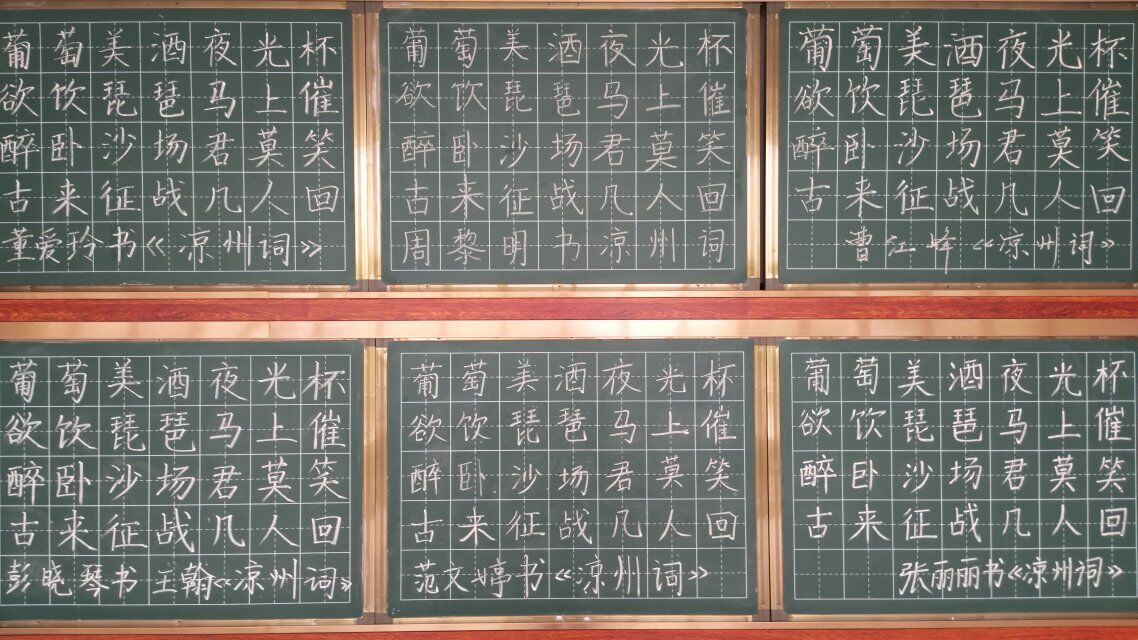 葡萄美酒夜光杯
欲饮琵琶马上催
醉卧沙场君莫笑
古来征战几人回
董爱玲书《凉州词》
葡萄美酒夜光杯
欲饮琵琶马上催
醉卧沙场君莫笑
古来征战几人回
周黎明书凉州词
葡萄美酒夜光杯
欲饮琵琶马上催
醉卧沙场君莫笑
古来征战几人回
曹红峰《凉州词》
葡萄美酒夜光杯
欲饮琵琶马上催
醉卧沙场君莫笑
古来征战几人回
彭晓琴书王翰《凉州词》
葡萄美酒夜光杯
欲饮琵琶马上催
醉卧沙场君莫笑
古来征战几人回
范文婷书《凉州词》
葡萄美酒夜光杯
欲饮琵琶马上催
醉卧沙场君莫笑
古来征战几人回
张丽丽书《凉州词》